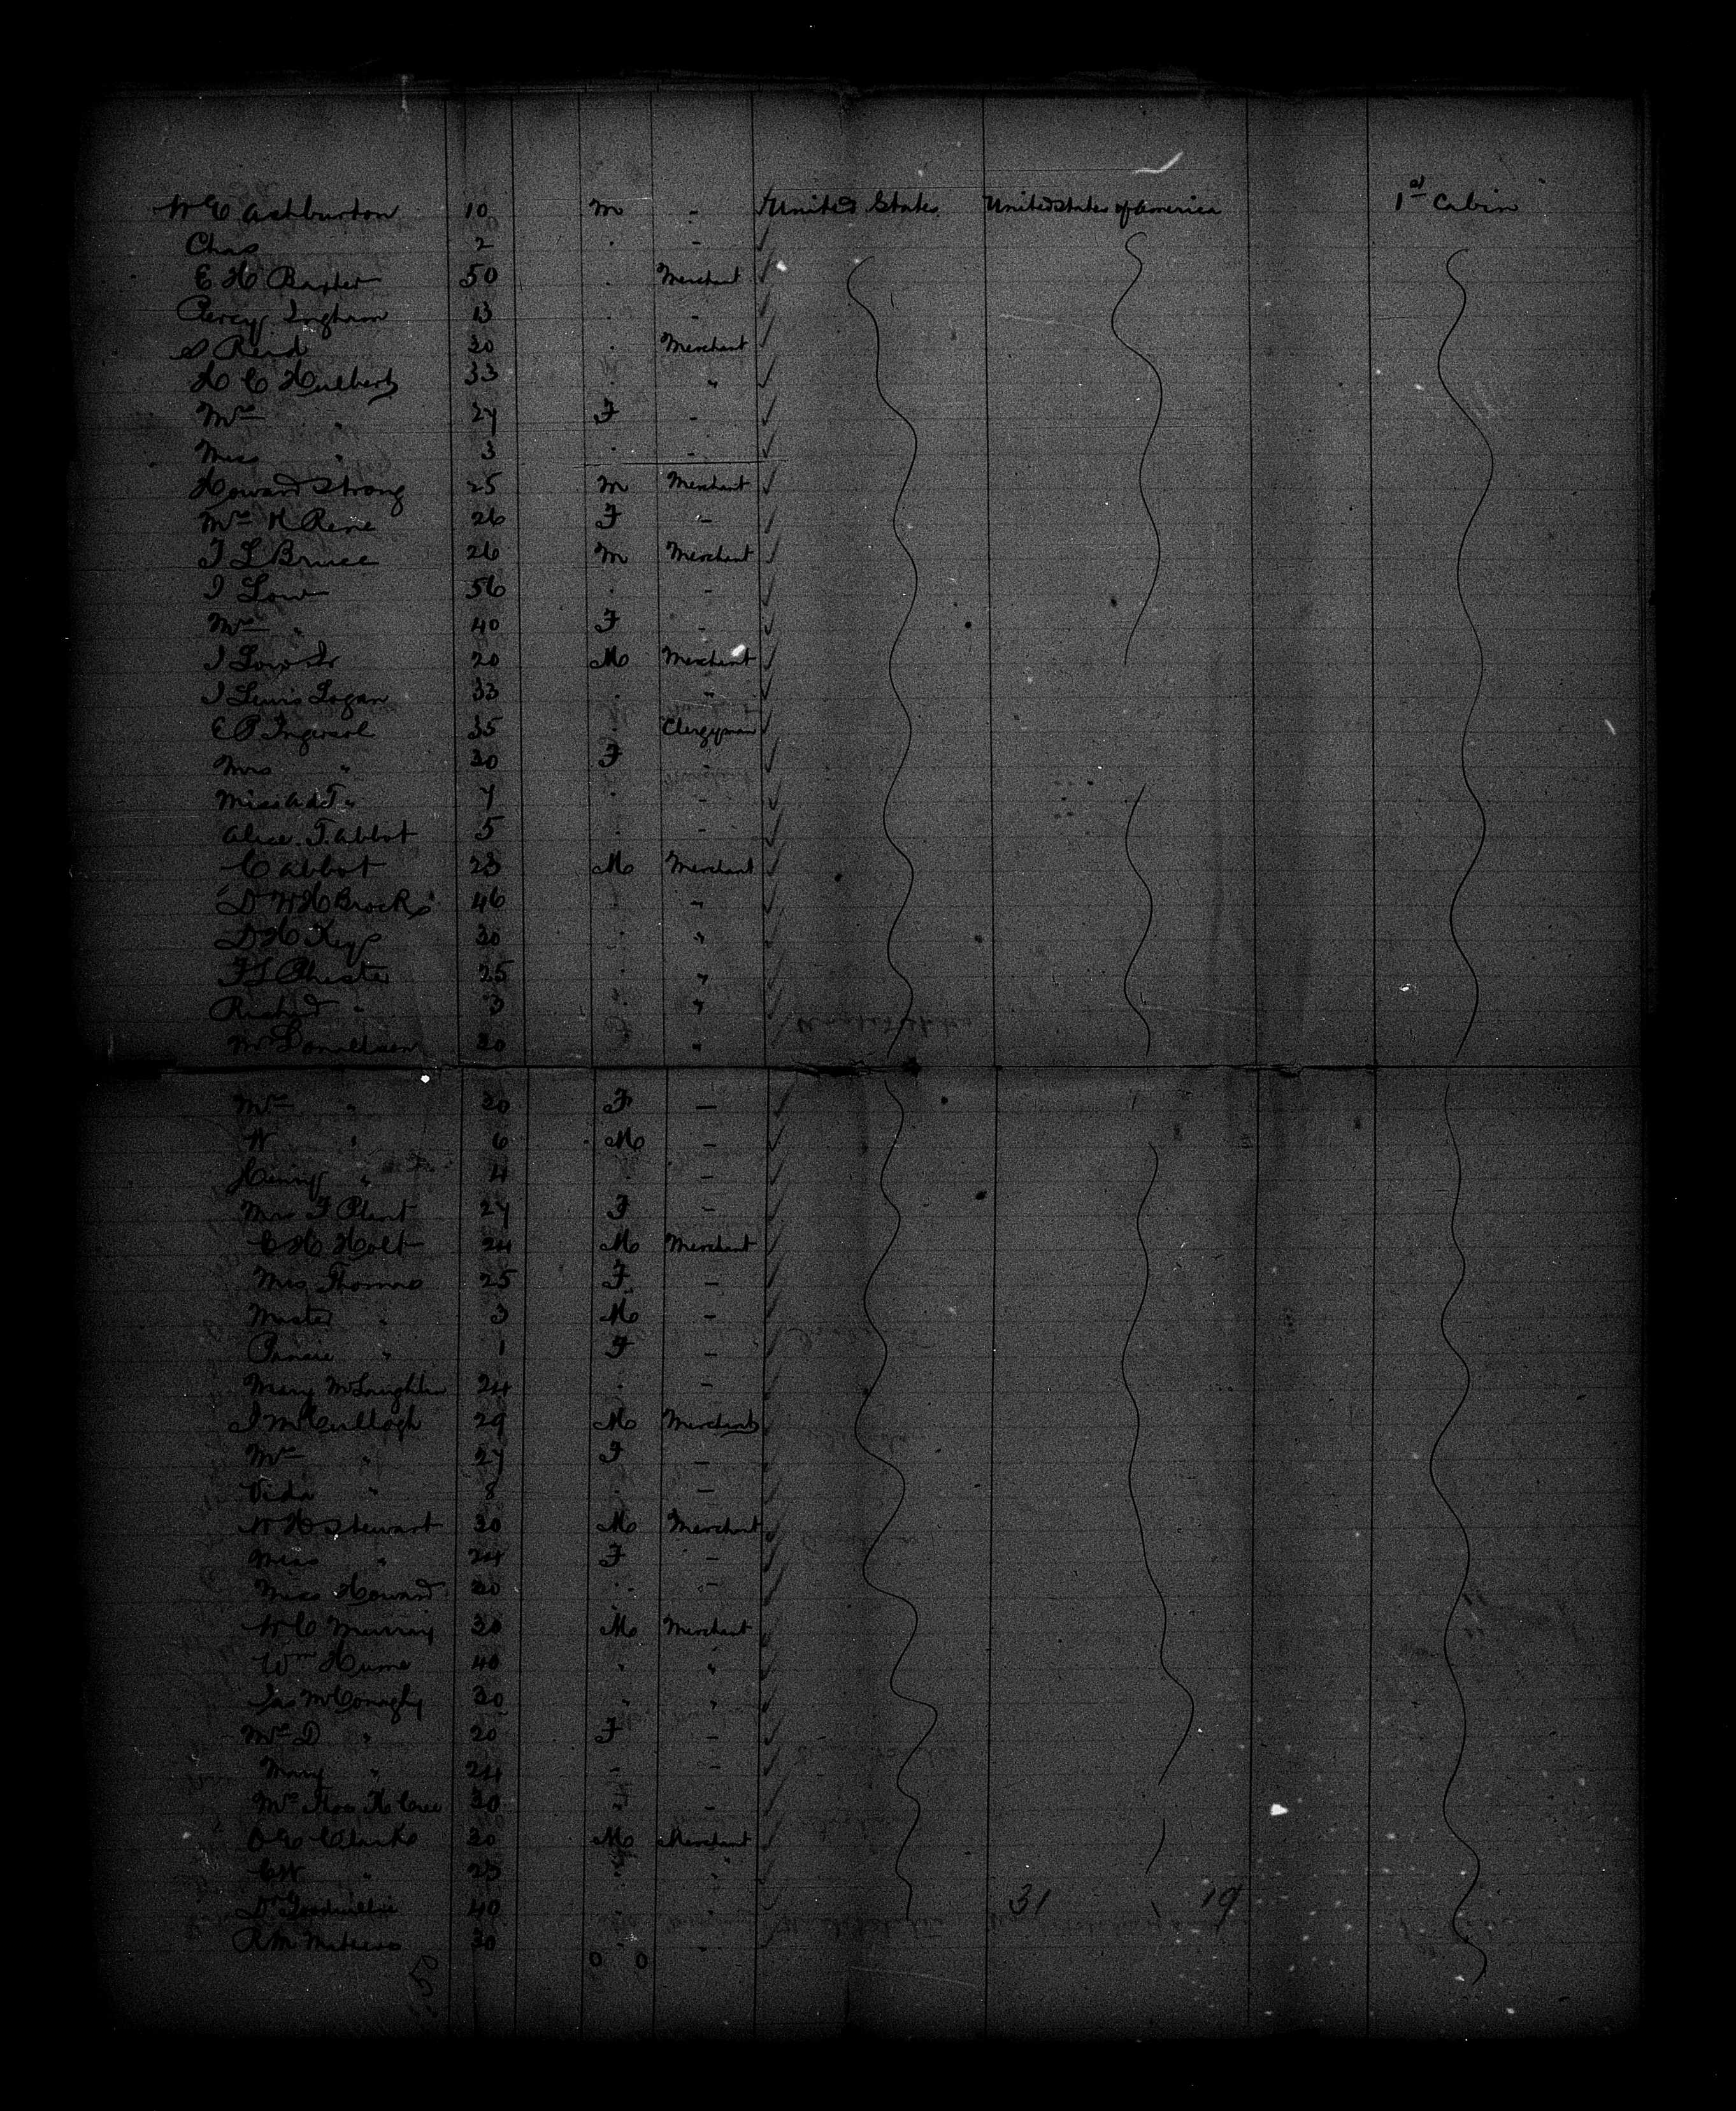 W E Ashburton 10 m - United States United States of America 1st Cabin
Chas 2 . -
E H Baxter 50 . Merchant
Percy Ingham 13 . -
S Reid 30 . Merchant
H C Hulbert 33 . "
Mrs " 27 F -
Miss " 3 . -
Howard Strong 25 m Merchant
Mrs H Rene 26 F -
T L Bruce 26 m Merchant
I Low 56 . -
Mrs " 40 F -
I Low Jr 20 M Merchant
I Lewis Logan 33 . "
E P Ingersol 35 . Clergyman
Mrs " 30 F -
Miss " 7 . -
Alice T. Abbot 5 . -
C Abbot 23 M Merchant
D W H Brooks 46 . "
D H Key 30 . "
F S Chester 25 . "
Richard " 3 . "
Mr Donaldson 30 "
Mrs " 30 F -
W " 6 M -
Henry " 4 . -
Mrs F Plant 27 F -
C H Holt 24 M Merchant
Mrs Thomas 25 F -
Master " 3 M -
" 1 F -
Mary McLaughlin 24 . -
I McCullogh 29 M Merchant
Mrs " 27 F -
Vida " 8 . -
W H Stewart 30 M Merchant
Miss " 24 F -
Miss Howard 20 . -
W C Murray 30 M Merchant
Wm Hume 40 " "
Jas McConaghy 30 " "
Mrs D " 20 F -
Mary " 24 - -
Mrs 30 " -
Clarke 30 M Merchant
C W " 23 " "
Dr Goodwillie 40 - " 31 19
R M Mathews 30 - "
50 0 0